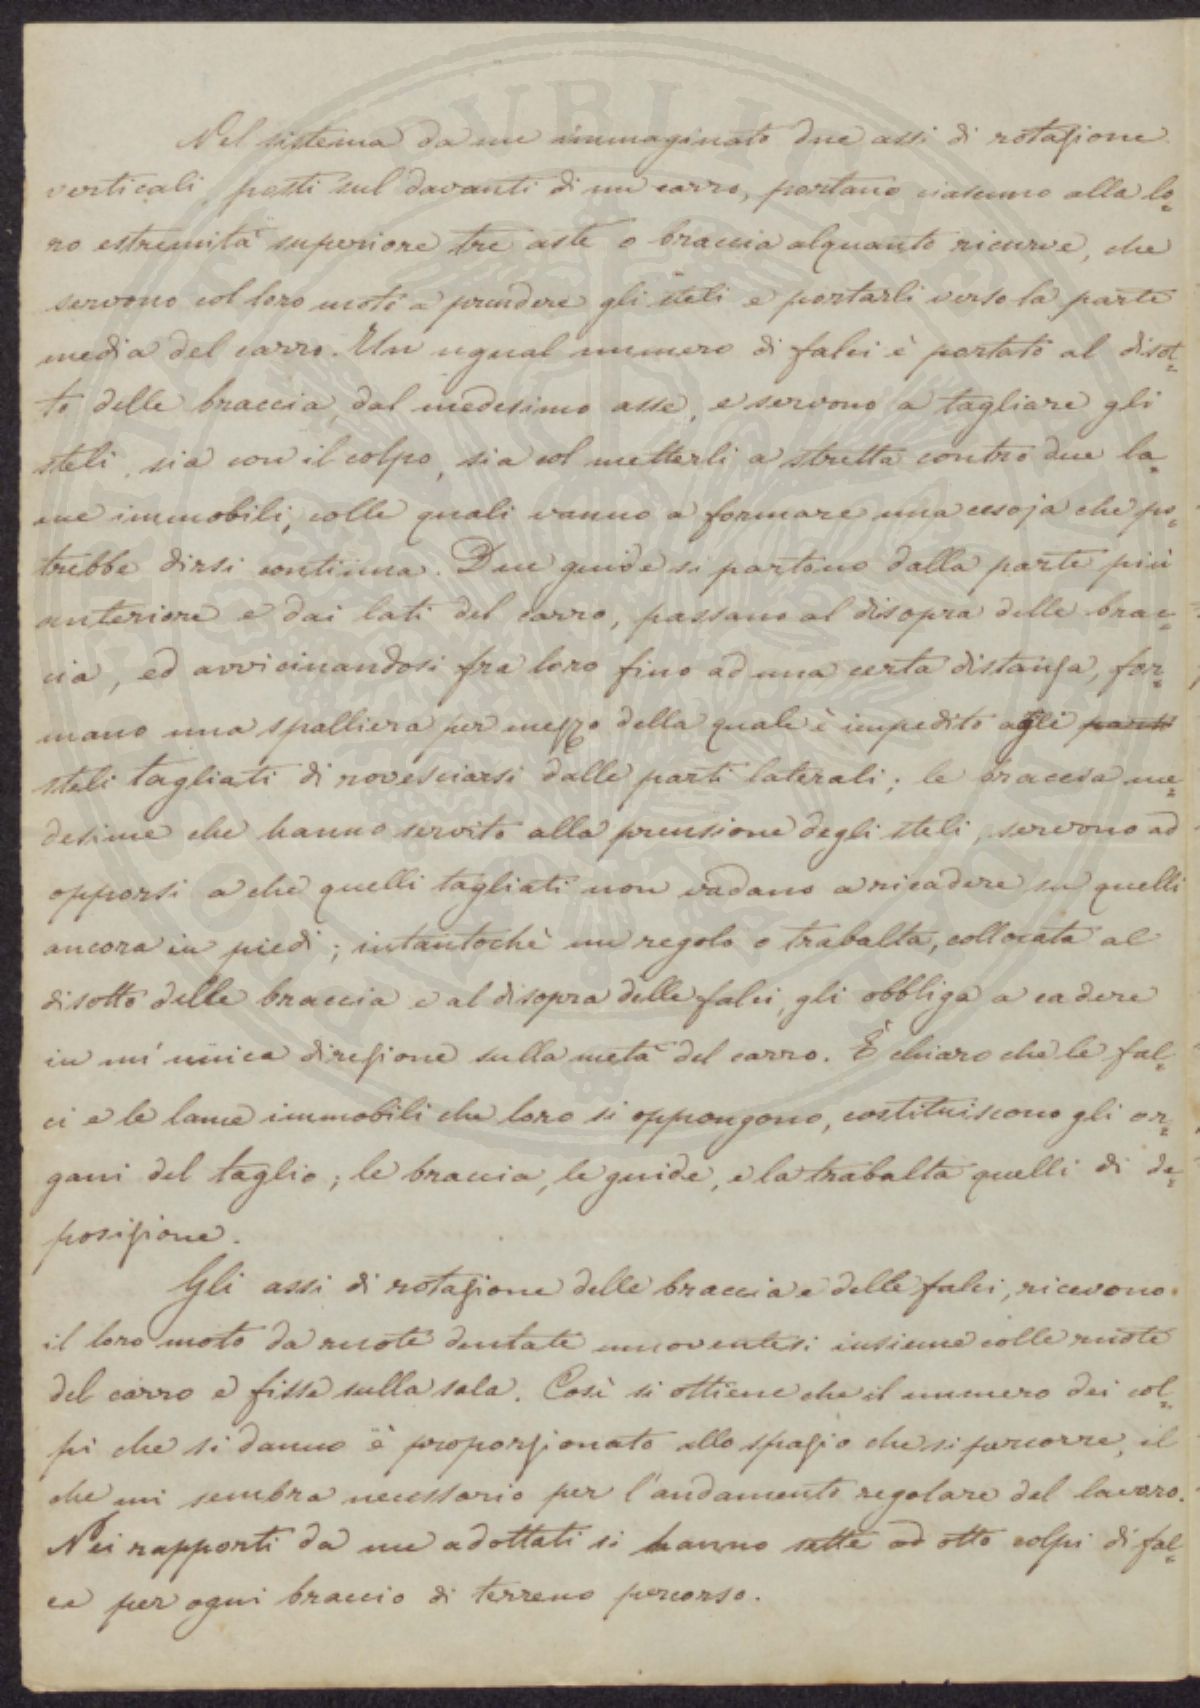 Nel sistema da me immaginato due assi di rotazione
verticali, posti sul davanti di un carro, portano ciascuno alla lo=
ro estremità superiore tre aste o braccia alquanto ricurve, che
servono col loro moto a prendere gli steli e portarli verso la parte
media del carro. Un ugual numero di falci è portato al disot=
to delle braccia, dal medesimo asse, e servono a tagliare gli
steli, sia con il colpo, sia col metterli a stretta contro due la=
me immobili, colle quali vanno a formare una cesoja che po=
trebbe dirsi continua. Due guide si partono dalla parte più
anteriore e dai lati del carro, passano al disopra delle brac=
cia, ed avvicinandosi fra loro fino ad una certa distanza, for=
mano una spalliera per mezzo della quale è impedito agli
steli tagliati di rovesciarsi dalle parti laterali; le braccia me=
desime che hanno servito alla prensione degli steli, servono ad
opporsi a che quelli tagliati non vadano a ricadere su quelli
ancora in piedi; intantochè un regolo o trabalta, collocata al
disotto delle braccia e al disopra delle falci, gli obbliga a cadere
in un' unica direzione sulla metà del carro. È chiaro che le fal=
ci e le lame immobili che loro si oppongono, costituiscono gli or=
gani del taglio; le braccia, le guide, e la trabalta quelli di de=
posizione.
Gli assi di rotazione delle braccia e delle falci, ricevono
il loro moto da ruote dentate muoventesi insieme colle ruote
del carro e fisse sulla sala. Così si ottiene che il numero dei col=
pi che si danno è proporzionato allo spazio che si percorre, il
che mi sembra necessario per l'andamento regolare del lavoro.
Nei rapporti da me adottati si hanno sette ad otto colpi di fal=
ce per ogni braccio di terreno percorso.